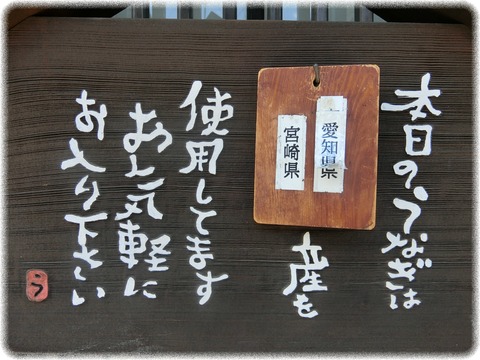 本日のうなぎは
愛知県
宮崎県
産を
使用してます
お気軽に
お入り下さい
う